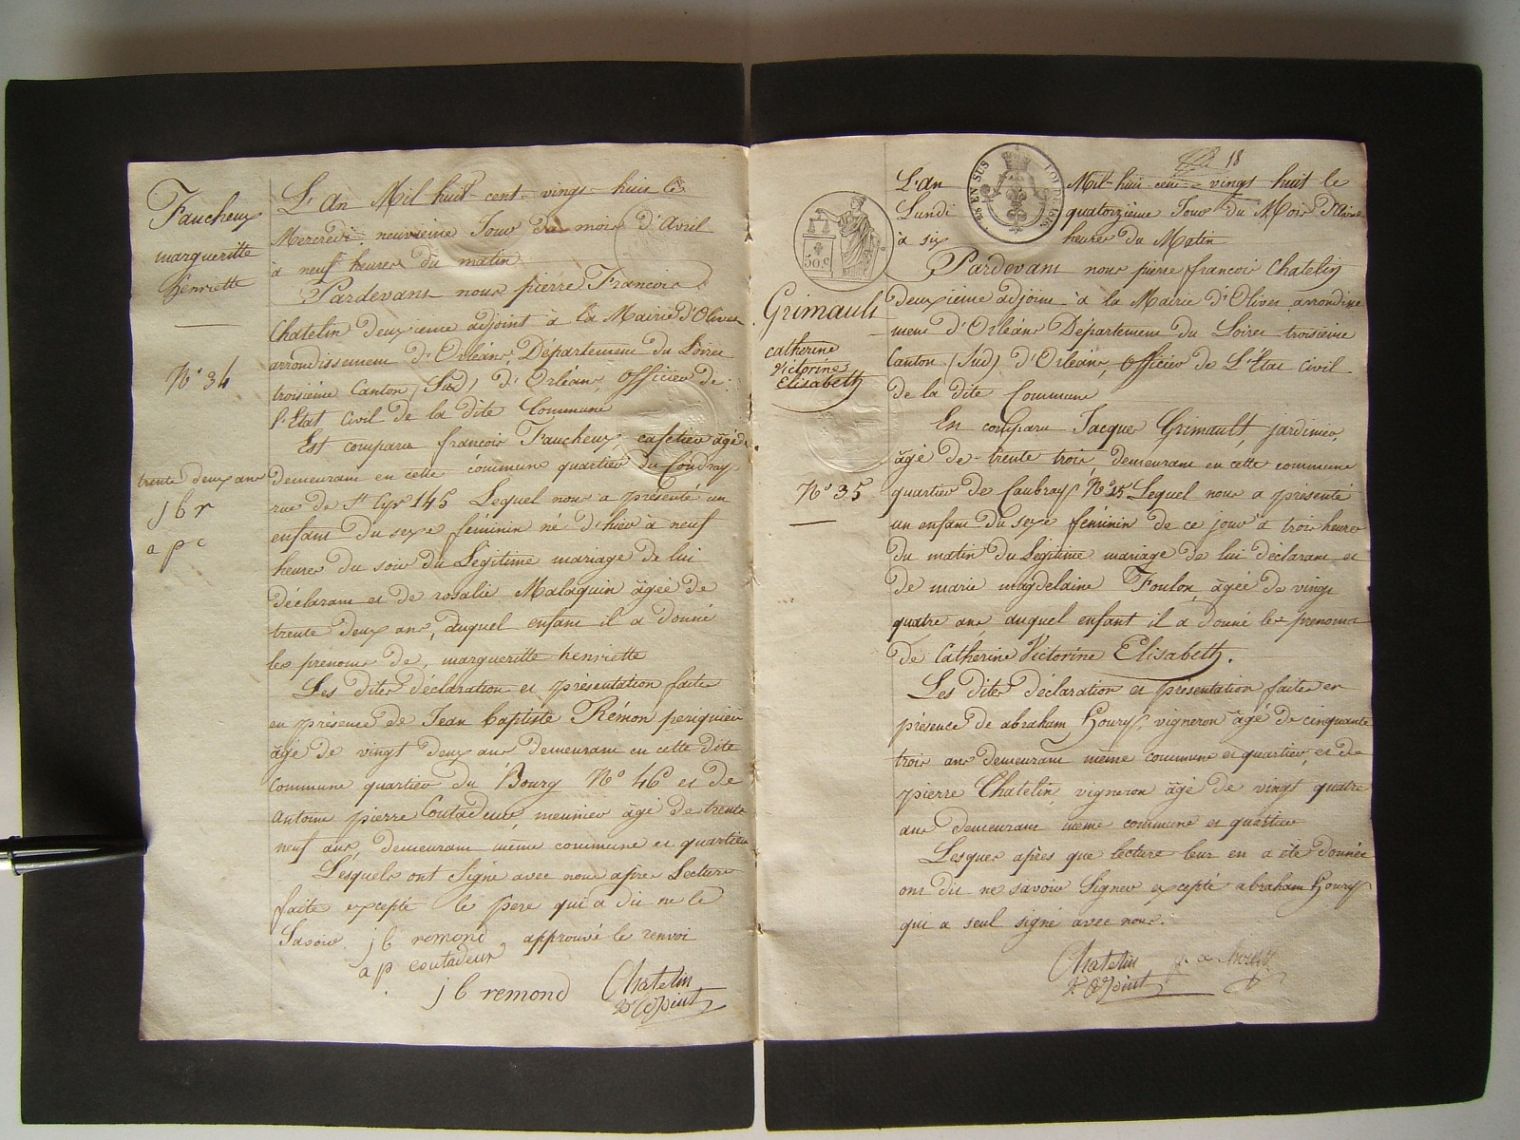 Faucheux
margueritte
henriette
N° 34
trente deux ans
j b r
a p c
L'An Mil huit cent vingt huit le
Mercredi neuvieme Jour du mois d'Avril
à neuf heures du matin
Pardevant nous pierre François
Chatelin deuxieme adjoint à la Mairie d'Olivet
arrondissement d'Orléans Département du Loiret
troisieme Canton (Sud) d'Orléans, Officier de
l'Etat Civil de la dite Commune
Est comparu françois Faucheux, cafetier âgé de
demeurant en cette commune quartier du Coudray
rue de St Cyr 145 Lequel nous a présenté un
enfant du sexe féminin né d'hier à neuf
heures du soir du Légitime mariage de lui
déclarant et de rosalie Malaquin âgée de
trente deux ans, auquel enfant il a donné
les prenoms de, margueritte henriette
Les dites déclaration et présentation faites
en présence de Jean baptiste Rémon
âgé de vingt deux ans demeurant en cette dite
Commune quartier du Bourg N° 46 et de
antoine pierre Coutadeur meunier âgé de trente
neuf ans, demeurant même commune et quartier
Lesquels ont Signé avec nous après Lecture
faite excepté le pere qui a dit ne le
Savoir. j b remond, approuvé le renvoi
a p coutadeur
j b remond Chatelin
2e adjoint
18
EN SUS
50 c
Grimault
catherine
victorine
Elisabeth
N° 35
L'An Mil huit cent vingt huit le
Lundi quatorzième Jour du Mois d'Avril
à six heures du Matin
Pardevant nous pierre françois Chatelin
deuxieme adjoint à la Mairie d'Olivet arrondisse
ment d'Orléans Département du Loiret troisieme
Canton (Sud) d'Orléans, Officier de L'Etat Civil
de la dite Commune
En comparu Jacques Grimault, jardinier,
âgé de trente trois, demeurant en cette commune
quartier de Caubray N° 15 Lequel nous a présenté
un enfant du sexe féminin de ce jour à trois heures
du matin du Légitime mariage de lui déclarant et
de marie magdelaine Foulon, âgée de vingt
quatre ans auquel enfant il a donné les prenoms
de Catherine Victorine Elisabeth.
Les dites déclaration et présentation faites en
présence de abraham houry vigneron âgé de cinquante
trois ans demeurant même commune et quartier, et de
pierre Chatelin, vigneron âgé de vingt quatre
ans demeurant même commune et quartier
Lesquels après que lecture leur en a été donnée
ont dit ne savoir Signer excepté abraham houry
qui a seul signé avec nous.
Chatelin a houry
2e adjoint